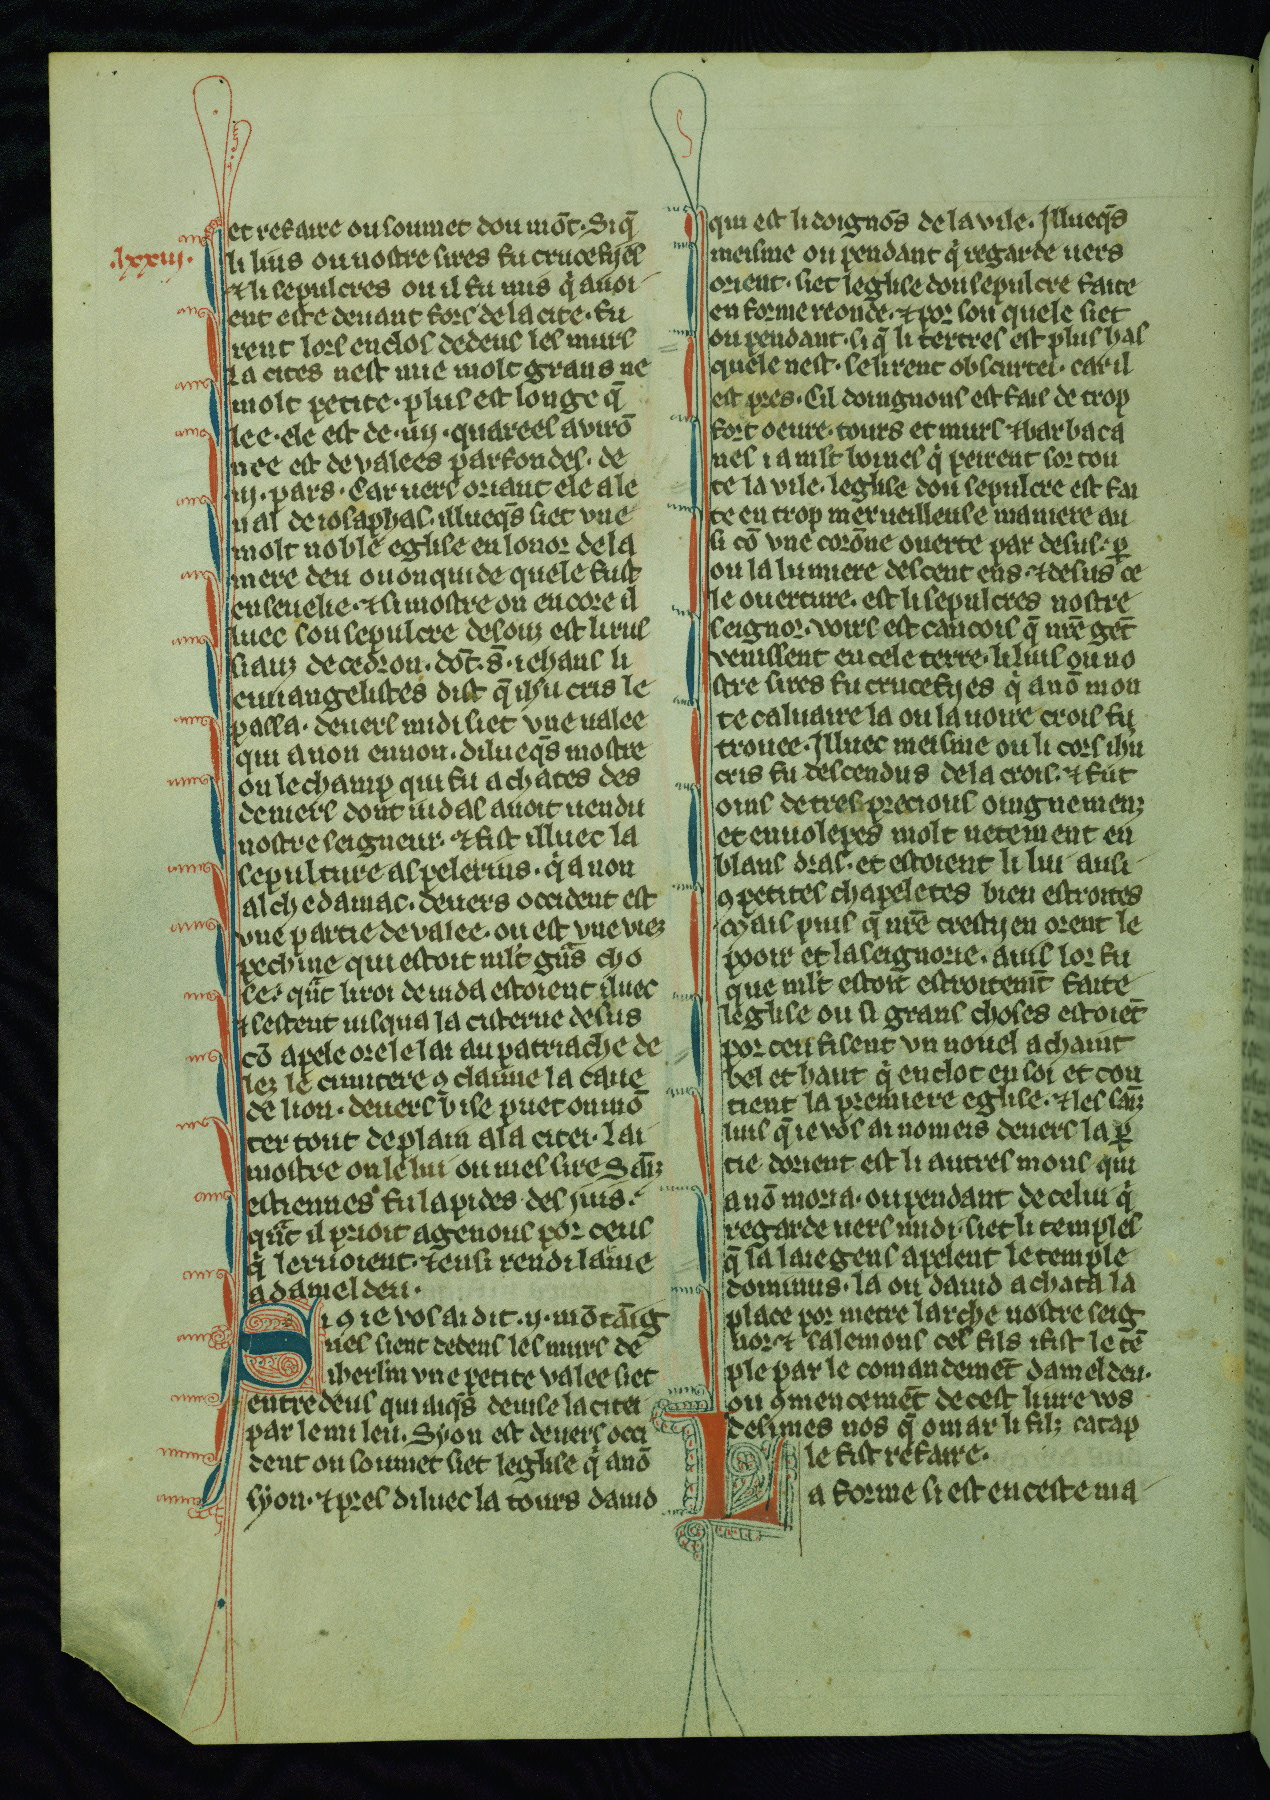 .lxxiij.
et refaire ou soumet dou mōt. Si q̄
li lius ou nostre sires fu crucefijes
⁊ li sepulcres ou il fu mis q̄ auoi
ent este deuant fors de la cite. fu
rent lors enclos dedens les murs
La cites nest mie molt grans ne
molt petite. plus est longe q̄
lee. ele est de .iiij. quareel avirō
nee est de valees parfondes. de
iij. pars. Car uers oriant ele a le
ual de iosaphas. illueq̄s siet vne
molt noble eglise en lonor de la
mere deu ou on quide quele fust
enseuelie. ⁊ si mostre on encore il
luec son sepulcre desouz est li ruis
siauz de cedron. dōt. s̄. iehans li
ewangelistes dist q̄ ihu cris le
passa. deuers midi siet vne ualee
qui a non ennon. dilueq̄s mostre
on le champ qui fu achates des
deniers dont iudas auoit uendu
nostre seigneur. ⁊ fist illuec la
sepulture as pelerins. q̄ a non
alchedamac. deuers occident est
vne partie de valee. ou est vne viez
pechine qui estoit mlt gn̄s cho
se. qn̄t li roi de iuda estoient illuec
⁊ sestent iusqua la cisterne desus
cō apele ore le lai au patriache de
lez le cimitere ꝯ claime la caue
de lion. deuers bise puet on mō
ter tout de plain a la citei. Lai
mostre on le liu ou mes sire Sain̄z
estiennes fu lapides des juis.
qn̄t il prioit a genous por ceus
q̄ le ruoient. ⁊ ensi rendi lame
a dameldeu.
Si ꝯ ie vos ai dit. ij. mōtāig
nes sient dedens les murs de
iherlm vne petite valee siet
entre deus qui aiq̄s deuise la citei
par le mi leu. Syon est deuers occi
dent ou soumet siet leglise q̄ a nō
syon. ⁊ pres diluec la tours dauid
qui est li doignōs de la vile. Jllueq̄s
meisme ou pendant q̄ regarde uers
orient. siet leglise dou sepulcre faite
en forme reonde. ⁊ por son quele siet
ou pendant. si q̄ li tertres est plus has
quele nest. seli rent obscurtei. car il
est pres. Cil doingnons est fais de trop
fort oeure. tours et murs ⁊ barbaca
nes i a mlt boines q̄ peirent sor tou
te la vile. leglise dou sepulcre est fai
te en trop merueilleuse maniere au
si cō vne corōne ouerte par desus. ꝑ
ou la lumiere descent ens. ⁊ desus ce
le ouerture. est li sepulcres nostre
seignor. voirs est cancois q̄ nr̄e gēt
venissent en cele terre. li lius ou no
stre sires fu crucefijes q̄ a nō mon
te caluaire la ou la uoire crois fu
trouee. Jlluec meisme ou li cors ihu
cris fu descendus de la crois. ⁊ fut
oins de tres precious oinguemenz
et enuolepes molt netement en
blans dras. et estoient li lui ausi
ꝯ petites chapeletes bien estroites
Mais puis q̄ nr̄e crestijen orent le
pooir et la seignorie. auis lor fu
que mlt estoit estroitemt̄ faite
leglise ou si grans choses estoiēt
por ceu fisent vn nouel achaint
bel et haut q̄ enclot en soi et con
tient la premiere eglise. ⁊ les sain̄z
luis q̄ ie vos ai nomeis deuers la ꝑ
tie dorient est li autres mons qui
a nō moria. ou pendant de celui q̄
regarde uers midi. siet li temples
q̄ la laie gens apelent le temple
dominus. la ou dauid achata la
place por metre larche nostre seig
nor. ⁊ salemons ces fils i fist le tē
ple par le comandemēt dameldeu.
ou ꝯmencemēt de cest liure vos
desimes nos q̄ omar li filz catap
le fist refaire.
La forme si est en ceste ma